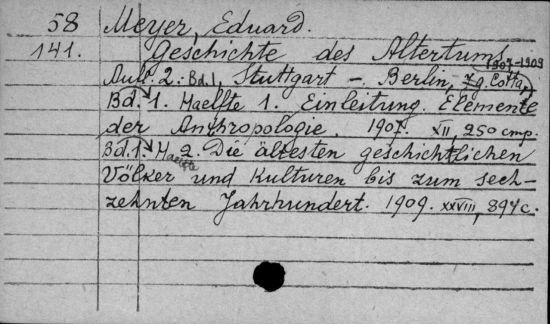 58 Meyer, Eduard.
141. Geschichte des Altertums,
Aufl. 2. Bd. 1, Stuttgart – Berlin, J. g. Cotta, 1907-1909
Bd. 1. Haelfte 1. Einleitung. Elemente
der Anthropologie. 1907. XII, 250 стр.
Bd. 1. Haelfte 2. Die ältesten geschichtlichen
Völker und Kulturen bis zum sech-
zehnten Jahrhundert. 1909. XXVIII, 894 с.